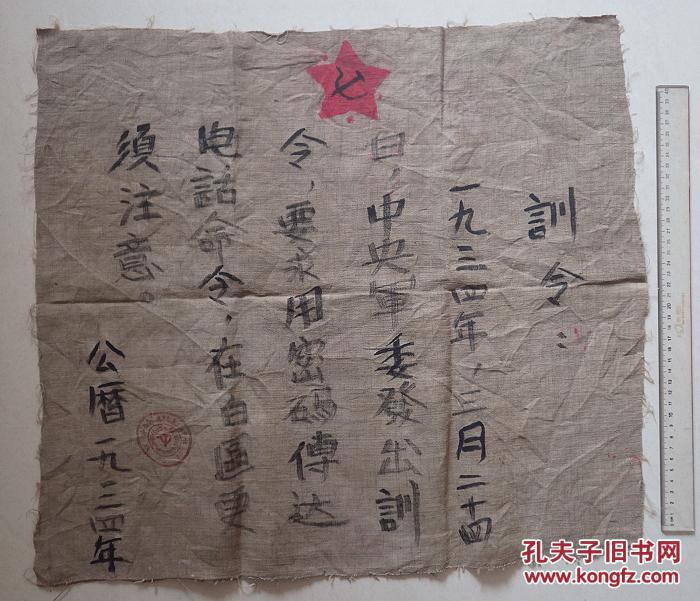 訓令：
一九三四年，三月二十四
日，中央軍委發出訓
令，要求用密碼傳达
电話命令，在白區更
須注意。
公曆一九三四年
孔夫子旧书网
www.kongfz.com